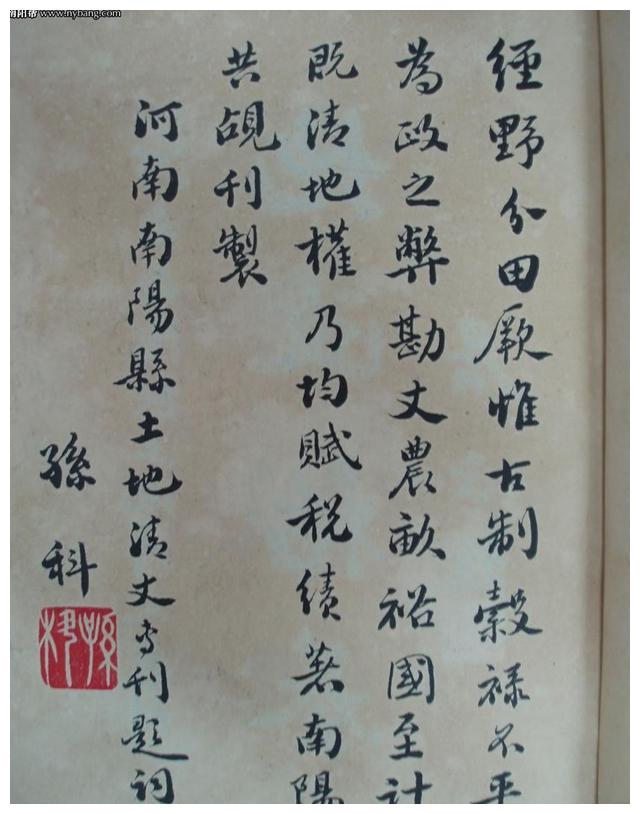 經野分田厥惟古制穀祿不平
為政之弊勘丈農畝裕國至計
既清地權乃均賦稅績著南陽
共覘刊製
河南南陽縣土地清丈專刊題詞
孫科
孫科
www.nybang.com